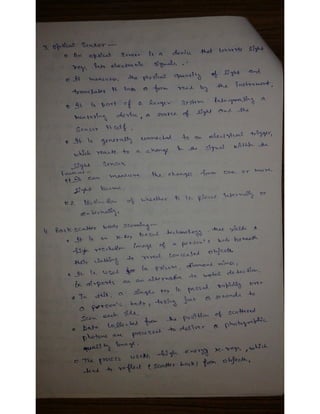 3. Optical Sensor —
• An optical sensor is a device that converts light
rays into electronic signals.
• It measures the physical quantity of light and
translates it into a form read by the instrument.
• It is part of a larger system integrating a
measuring device, a source of light and the
sensor itself.
• It is generally connected to an electrical trigger,
which reacts to a change in the signal within the
light sensor.
• It can measure the changes from one or more
light beams.
of whether it is placed internally or
externally.
4. Back scatter body scanning —
• It is an X-ray based technology that yields a
high resolution image of a person's body beneath
their clothing to reveal concealed objects.
• It is used in prison, diamond mine,
in airports as an alternative to metal detection.
• In this, a single ray is passed rapidly over
a person's body, taking just 8 seconds to
scan each side.
• Data collected from the position of scattered
photons are processed to deliver a photographic
quality image.
• The process uses high energy X-rays, which
tend to reflect (scatter back) from objects,